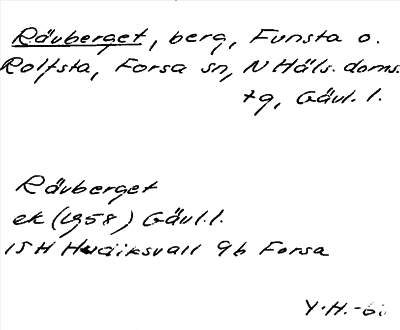 Rävberget, berg, Funsta o.
Rolfsta, Forsa sn, N Häls. doms.
tg, Gävl. l.
Rävberget
ek (1958) Gävl. l.
15 H Hudiksvall 9b Forsa
Y. H. -61